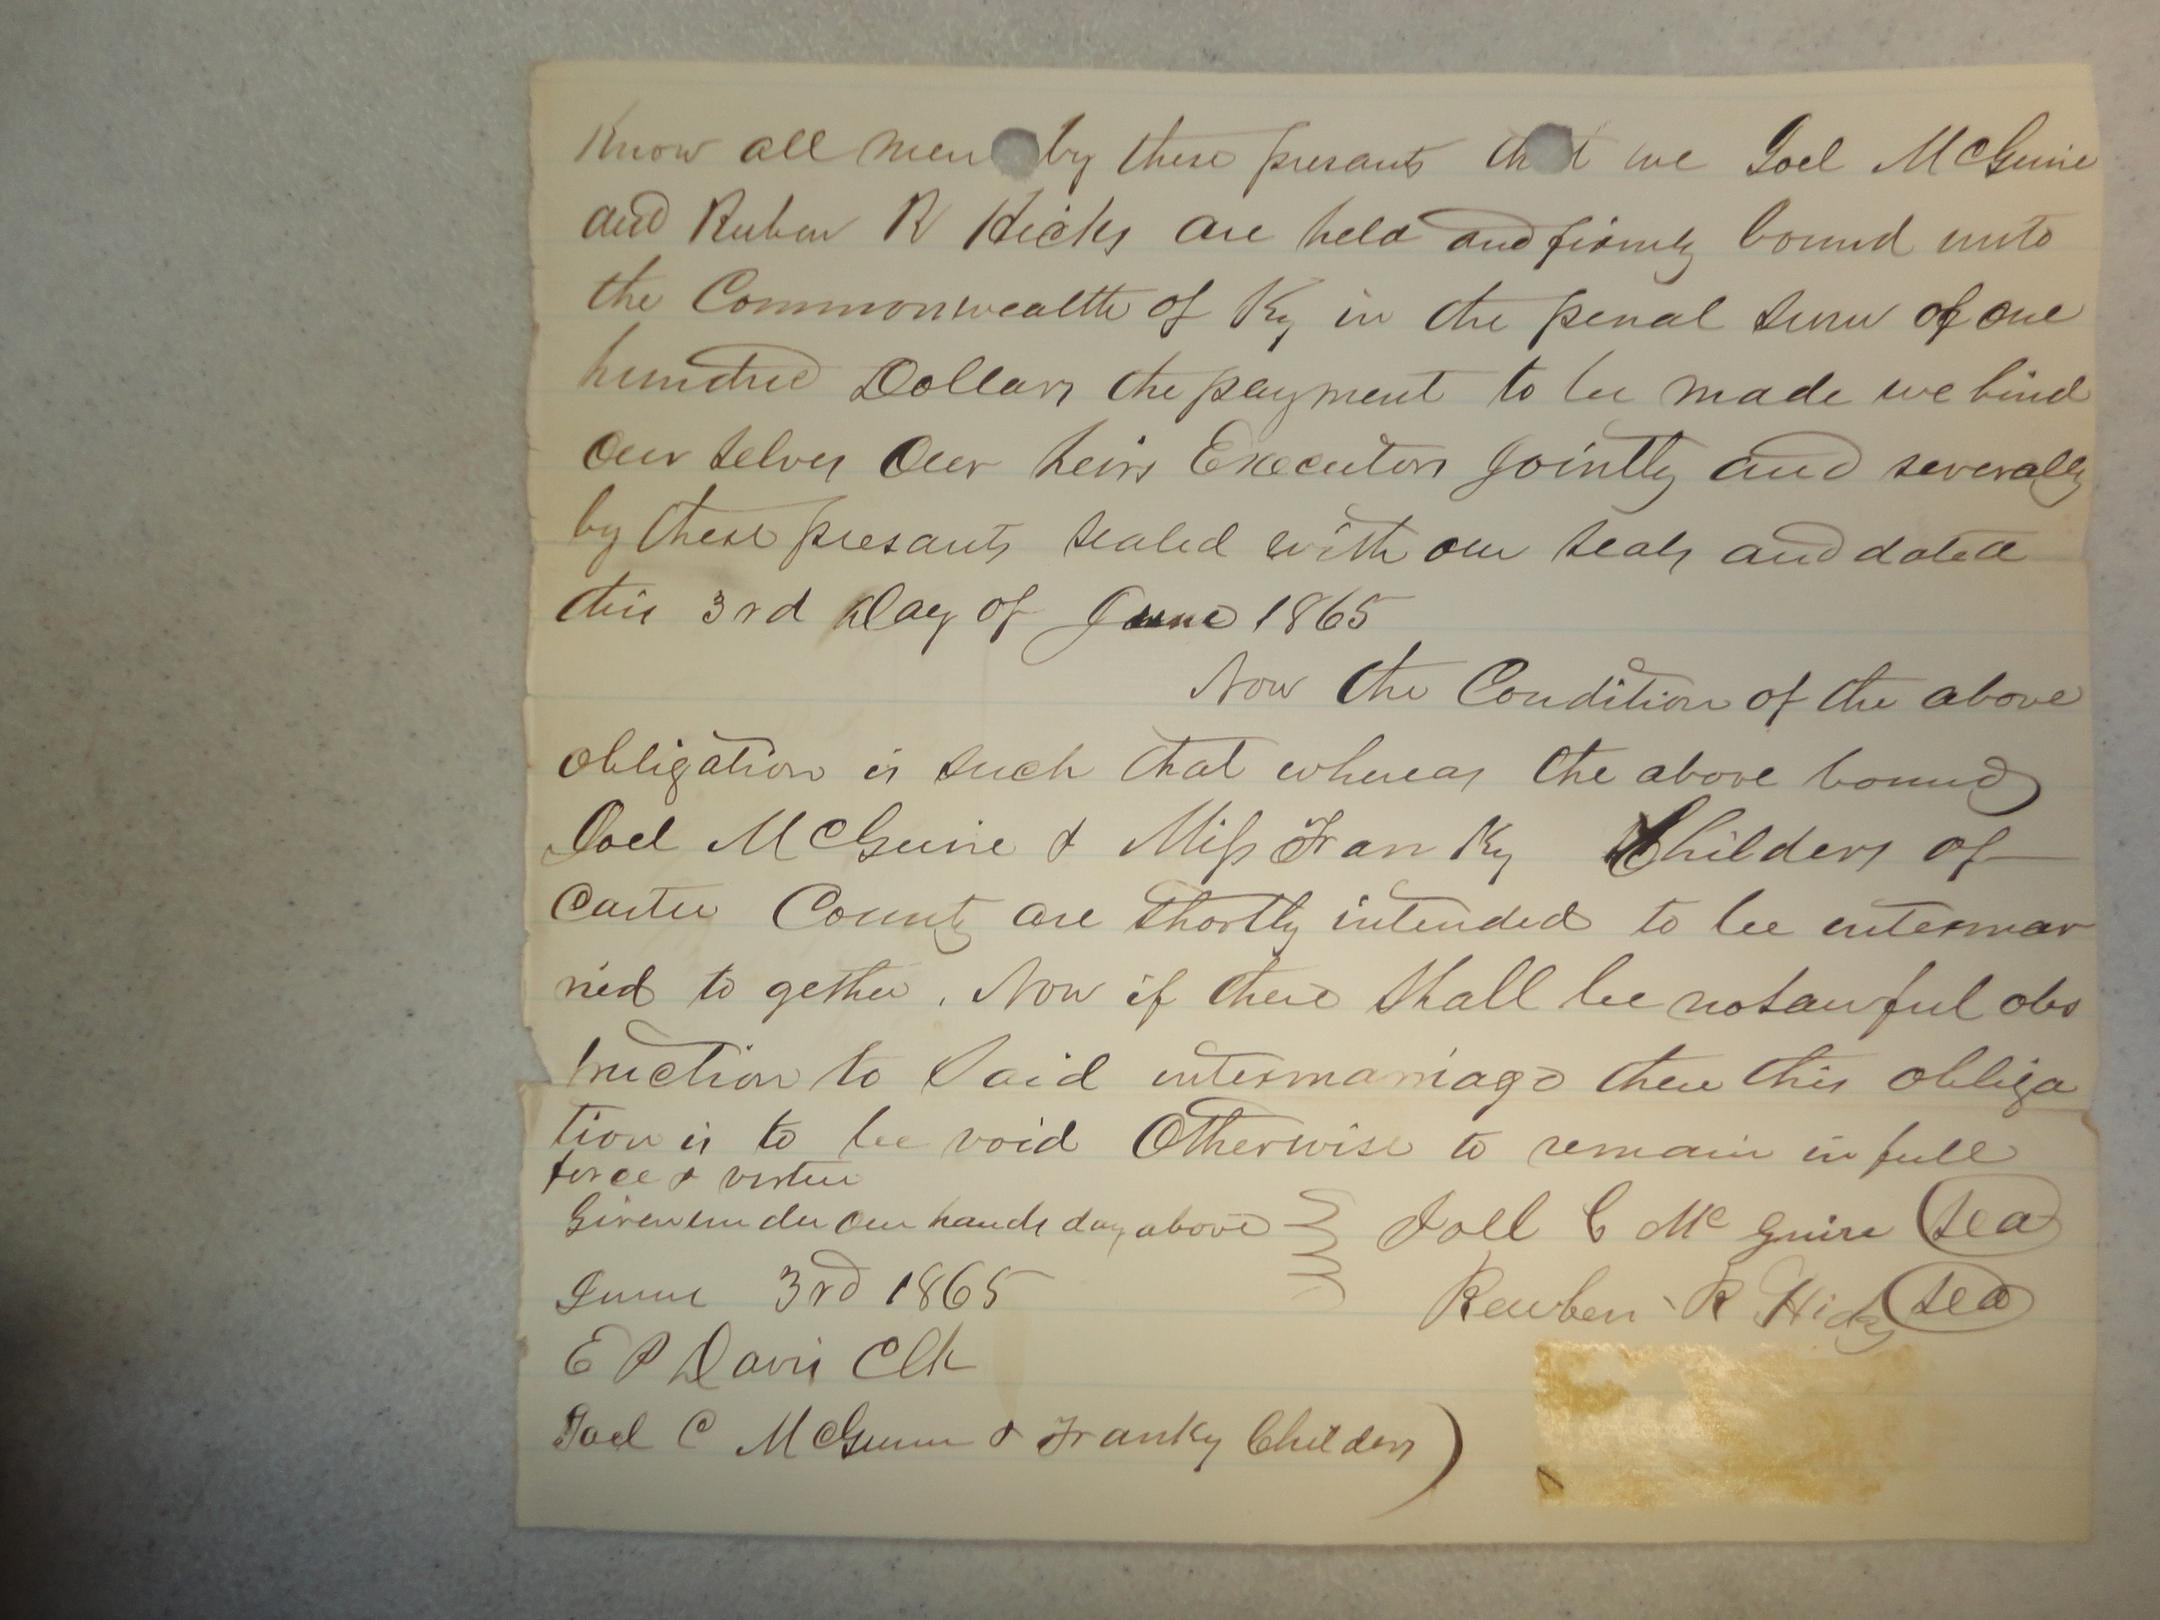 Know all men by these presants that we Joel McGuire
and Ruben R Hicks are held and firmly bound unto
the Commonwealth of Ky in the penal sum of one
hundred Dollars the payment to be made we bind
our selves our heirs Executors jointly and severally
by these presants sealed with our seals and dated
this 3rd Day of June 1865
Now the Condition of the above
obligation is such that whereas the above bound
Joel McGuire & Miss Franky Childers of
Carter County are shortly intended to be intermar
ried to gether. Now if there shall be no lawful obs
truction to Said intermarriage then this obliga
tion is to be void Otherwise to remain in full
force & virtue
Given under our hands day above
Joell C McGuire Sea
June 3rd 1865
Reuben R Hicks Sea
E P Davis Clk
Joel C McGuire & Franky Childers